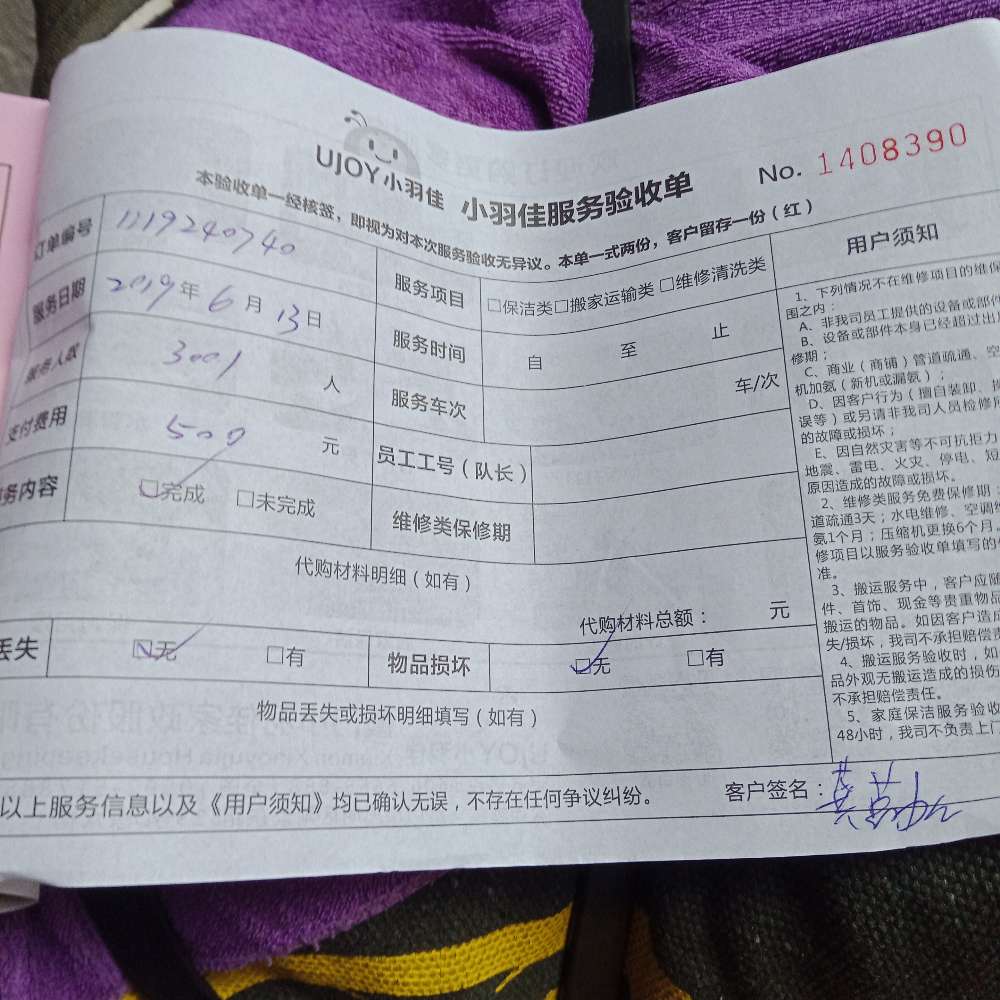 UJOY小羽佳 小羽佳服务验收单 No. 1408390
本验收单一经核签，即视为对本次服务验收无异议。本单一式两份，客户留存一份（红）
订单编号 1119240740
服务项目 □保洁类□搬家运输类□维修清洗类
服务日期 2019年6月13日
服务时间 自 至 止
服务人数 3001 人
服务车次 车/次
支付费用 500 元
员工工号（队长）
务内容 □完成 □未完成
维修类保修期
代购材料明细（如有）
代购材料总额： 元
丢失 □无 □有 物品损坏 □无 □有
物品丢失或损坏明细填写（如有）
以上服务信息以及《用户须知》均已确认无误，不存在任何争议纠纷。 客户签名：
用户须知
1、下列情况不在维修项目的维保
围之内：
A、非我司员工提供的设备或部件
B、设备或部件本身已经超过出
修期；
C、商业（商铺）管道疏通、空
机加氨（新机或漏氨）；
D、因客户行为（擅自装卸、
误等）或另请非我司人员检修
的故障或损坏；
E、因自然灾害等不可抗拒力
地震、雷电、火灾、停电、短
原因造成的故障或损坏。
2、维修类服务免费保修期：
道疏通3天；水电维修、空调
氨1个月；压缩机更换6个月。
修项目以服务验收单填写的
准。
3、搬运服务中，客户应随
件、首饰、现金等贵重物品
搬运的物品。如因客户造成
失/损坏，我司不承担赔偿责
4、搬运服务验收时，如
品外观无搬运造成的损伤
不承担赔偿责任。
5、家庭保洁服务验收
48小时，我司不负责上门